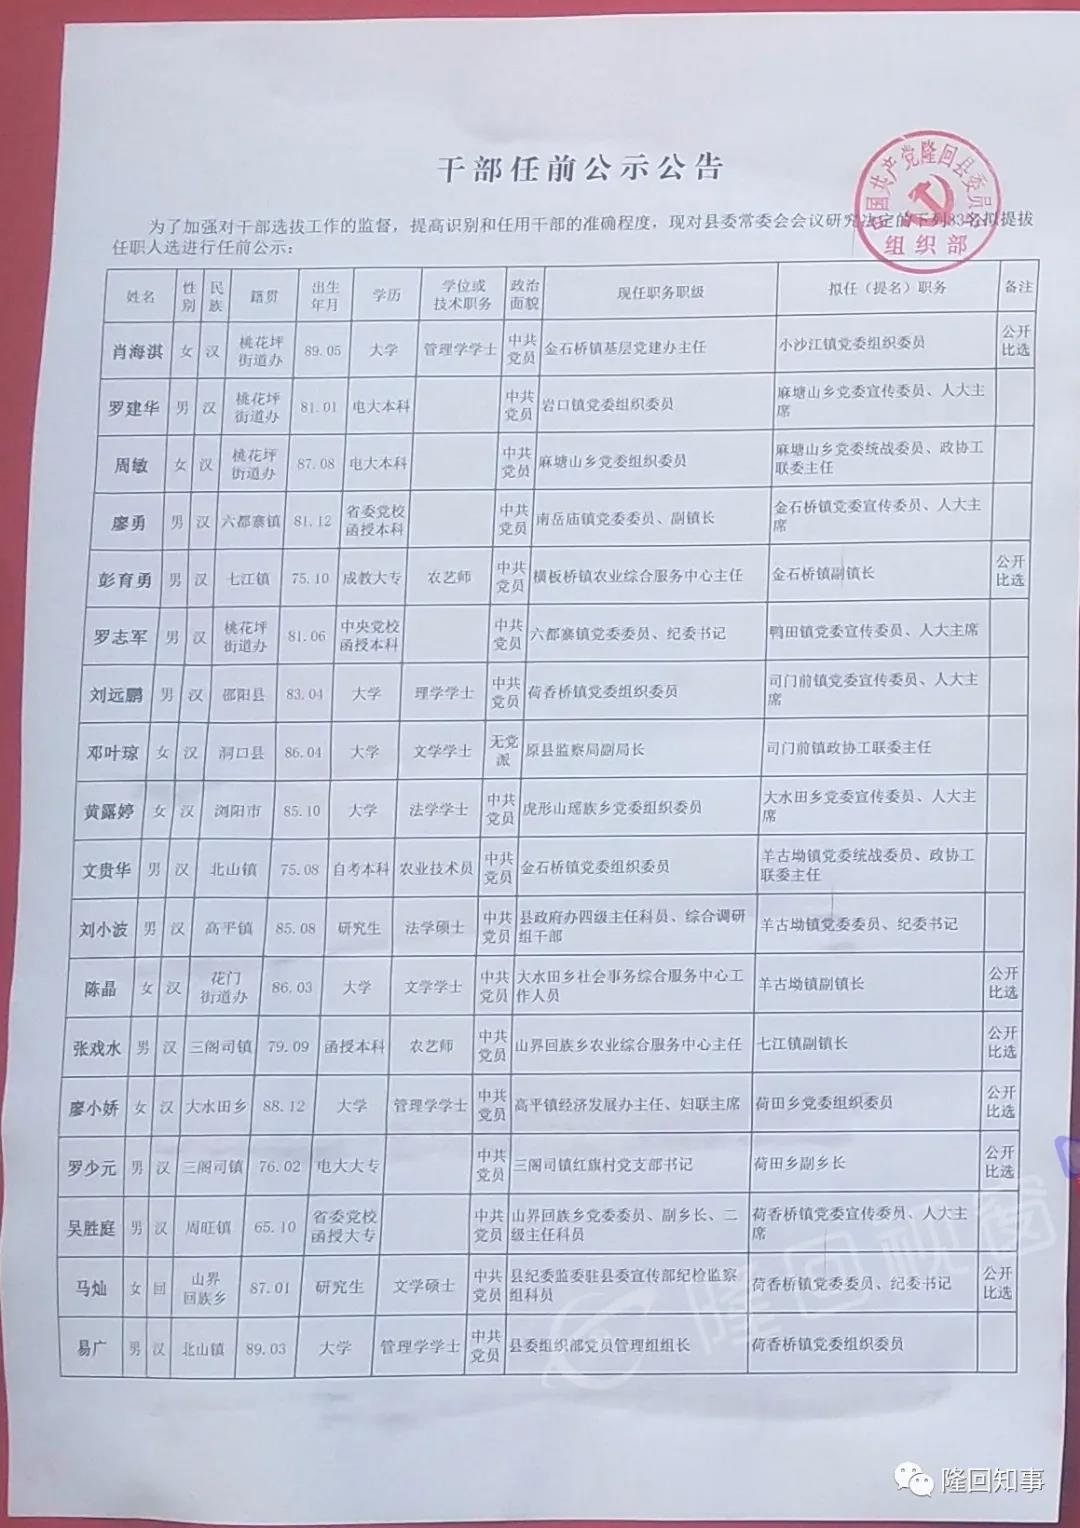 干部任前公示公告
中国共产党隆回县委员会
组织部
为了加强对干部选拔工作的监督，提高识别和任用干部的准确程度，现对县委常委会会议研究决定的下列83名拟提拔
任职人选进行任前公示：
姓名 性别 民族 籍贯 出生年月 学历 学位或技术职务 政治面貌 现任职务职级 拟任（提名）职务 备注
肖海淇 女 汉 桃花坪街道办 89.05 大学 管理学学士 中共党员 金石桥镇基层党建办主任 小沙江镇党委组织委员 公开比选
罗建华 男 汉 桃花坪街道办 81.01 电大本科 中共党员 岩口镇党委组织委员 麻塘山乡党委宣传委员、人大主席
周敏 女 汉 桃花坪街道办 87.08 电大本科 中共党员 麻塘山乡党委组织委员 麻塘山乡党委统战委员、政协工联委主任
廖勇 男 汉 六都寨镇 81.12 省委党校函授本科 中共党员 南岳庙镇党委委员、副镇长 金石桥镇党委宣传委员、人大主席
彭育勇 男 汉 七江镇 75.10 成教大专 农艺师 中共党员 横板桥镇农业综合服务中心主任 金石桥镇副镇长 公开比选
罗志军 男 汉 桃花坪街道办 81.06 中央党校函授本科 中共党员 六都寨镇党委委员、纪委书记 鸭田镇党委宣传委员、人大主席
刘远鹏 男 汉 邵阳县 83.04 大学 理学学士 中共党员 荷香桥镇党委组织委员 司门前镇党委宣传委员、人大主席
邓叶琼 女 汉 洞口县 86.04 大学 文学学士 无党派 原县监察局副局长 司门前镇政协工联委主任
黄露婷 女 汉 浏阳市 85.10 大学 法学学士 中共党员 虎形山瑶族乡党委组织委员 大水田乡党委宣传委员、人大主席
文贵华 男 汉 北山镇 75.08 自考本科 农业技术员 中共党员 金石桥镇党委组织委员 羊古坳镇党委统战委员、政协工联委主任
刘小波 男 汉 高平镇 85.08 研究生 法学硕士 中共党员 县政府办四级主任科员、综合调研组干部 羊古坳镇党委委员、纪委书记
陈晶 女 汉 花门街道办 86.03 大学 文学学士 中共党员 大水田乡社会事务综合服务中心工作人员 羊古坳镇副镇长 公开比选
张戏水 男 汉 三阁司镇 79.09 函授本科 农艺师 中共党员 山界回族乡农业综合服务中心主任 七江镇副镇长 公开比选
廖小娇 女 汉 大水田乡 88.12 大学 管理学学士 中共党员 高平镇经济发展办主任、妇联主席 荷田乡党委组织委员 公开比选
罗少元 男 汉 三阁司镇 76.02 电大大专 中共党员 三阁司镇红旗村党支部书记 荷田乡副乡长 公开比选
吴胜庭 男 汉 周旺镇 65.10 省委党校函授大专 中共党员 山界回族乡党委委员、副乡长、二级主任科员 荷香桥镇党委宣传委员、人大主席
马灿 女 回 山界回族乡 87.01 研究生 文学硕士 中共党员 县纪委监委驻县委宣传部纪检监察组科员 荷香桥镇党委委员、纪委书记 公开比选
易广 男 汉 北山镇 89.03 大学 管理学学士 中共党员 县委组织部党员管理组组长 荷香桥镇党委组织委员
隆回视窗
隆回知事